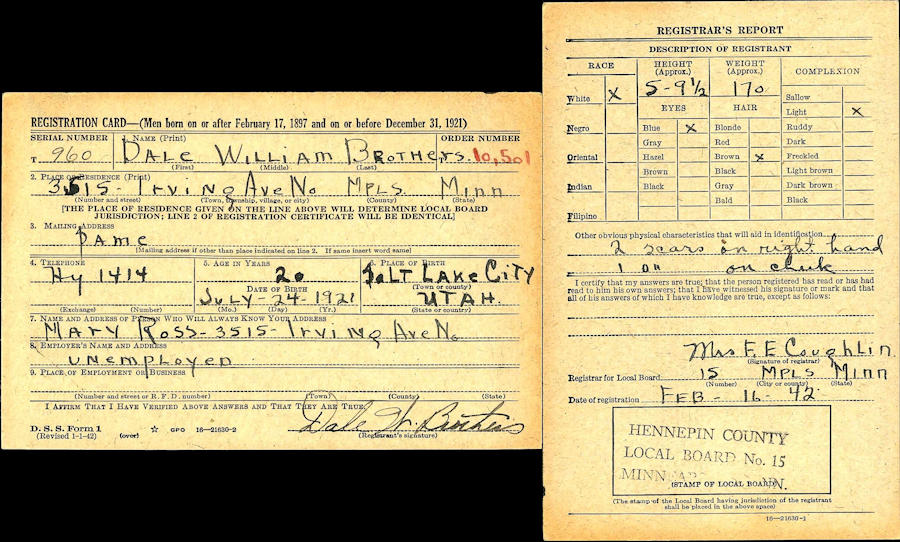 REGISTRATION CARD—(Men born on or after February 17, 1897 and on or before December 31, 1921)
SERIAL NUMBER 1. NAME (Print) ORDER NUMBER
T 960 DALE WILLIAM BROTHERS. 10,501
(First) (Middle) (Last)
2. PLACE OF RESIDENCE (Print)
3515 - Irving Ave No MPLS. MINN
(Number and street) (Town, township, village, or city) (County) (State)
[THE PLACE OF RESIDENCE GIVEN ON THE LINE ABOVE WILL DETERMINE LOCAL BOARD
JURISDICTION; LINE 2 OF REGISTRATION CERTIFICATE WILL BE IDENTICAL]
3. MAILING ADDRESS
Same
[Mailing address if other than place indicated on line 2. If same insert word same]
4. TELEPHONE 5. AGE IN YEARS 6. PLACE OF BIRTH
Hy 1414 20 SALT LAKE CITY
DATE OF BIRTH (Town or county)
JULY - 24 - 1921 UTAH.
(Exchange) (Number) (Mo.) (Day) (Yr.) (State or country)
7. NAME AND ADDRESS OF PERSON WHO WILL ALWAYS KNOW YOUR ADDRESS
MARY ROSS - 3515 - Irving Ave No
8. EMPLOYER'S NAME AND ADDRESS
UNEMPLOYED
9. PLACE OF EMPLOYMENT OR BUSINESS
(Number and street or R. F. D. number) (Town) (County) (State)
I AFFIRM THAT I HAVE VERIFIED ABOVE ANSWERS AND THAT THEY ARE TRUE.
D. S. S. Form 1
(Revised 1-1-42) (over) ☆ GPO 16—21630-2 Dale W. Brothers
(Registrant's signature)
REGISTRAR'S REPORT
DESCRIPTION OF REGISTRANT
RACE HEIGHT (Approx.) WEIGHT (Approx.) COMPLEXION
White X 5-9 1/2 170 Sallow
EYES HAIR Light X
Negro Blue X Blonde Ruddy
Gray Red Dark
Oriental Hazel Brown X Freckled
Brown Black Light brown
Indian Black Gray Dark brown
Bald Black
Filipino
Other obvious physical characteristics that will aid in identification
2 scars on right hand
1 on cheek
I certify that my answers are true; that the person registered has read or has had
read to him his own answers; that I have witnessed his signature or mark and that
all of his answers of which I have knowledge are true, except as follows:
Mrs F. E Coughlin
(Signature of registrar)
Registrar for Local Board 15 MPLS Minn
(Number) (City or county) (State)
Date of registration FEB - 16 - 42
HENNEPIN COUNTY
LOCAL BOARD No. 15
(STAMP OF LOCAL BOARD)
(The stamp of the Local Board having jurisdiction of the registrant
shall be placed in the above space)
16—21630-1